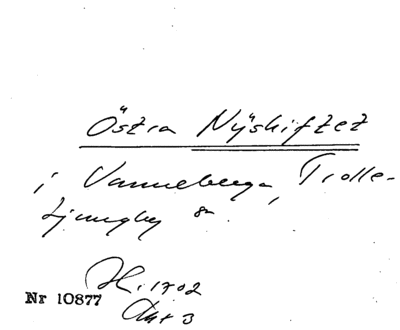 Östra Nyskiftet
i Vanneberga, Trolle-
Ljungby sn.
Hi. 1702
Nr 10877
Akt 3